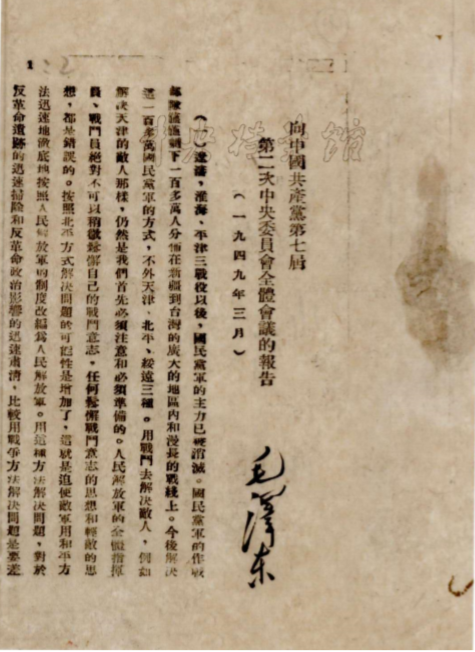 向中國共產黨第七屆
第二次中央委員會全體會議的報告
(一九四九年三月)
毛澤东
(一)遼瀋,淮海、平津三戰役以後,國民黨軍的主力已經消滅。國民黨軍的作戰
部隊僅僅剩下一百多萬人分佈在新疆到台灣的廣大的地區內和漫長的戰綫上。今後解决
這一百多萬國民黨軍的方式,不外天津、北平、綏遠三種。用戰鬥去解决敵人,例如
解决天津的敵人那樣,仍然是我們首先必須注意和必須準備的。人民解放軍的全體指揮
員、戰鬥員絕對不可以稍微鬆懈自己的戰鬥意志,任何鬆懈戰鬥意志的思想和輕敵的思
想,都是錯誤的。按照北平方式解决問題的可能性是增加了,這就是迫使敵軍用和平方
法迅速地澈底地按照人民解放軍的制度改編爲人民解放軍。用這種方法解决問題,對於
反革命遺跡的迅速掃除和反革命政治影響的迅速肅清,比較用戰爭方法解决問題是要差
1